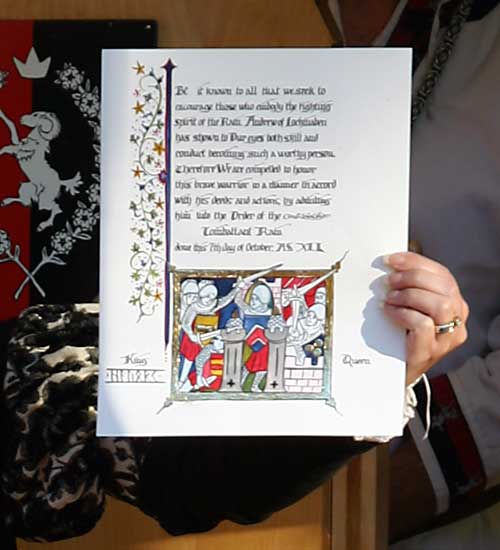 Be it known to all that we seek to
encourage those who embody the fighting
spirit of the Ram. Andrew of Lochlauben
has shown to Our eyes both skill and
conduct becoming such a worthy person.
Therefore We are compelled to honor
this brave warrior in a manner in accord
with his deeds and actions, by admitting
him into the Order of the
Combattant Ram
done this 7th day of October, A.S. XLI.
King
Queen